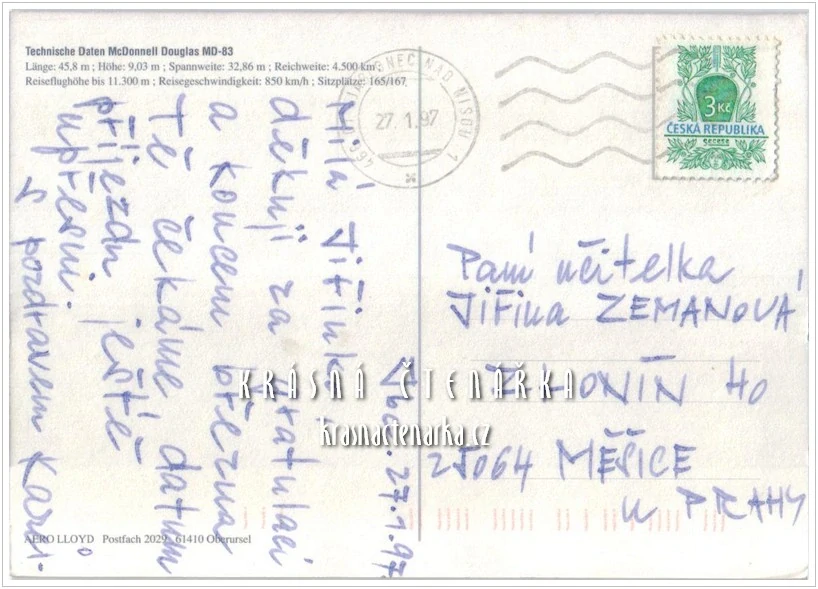 Technische Daten McDonnell Douglas MD-83
Länge: 45,8 m ; Höhe: 9,03 m ; Spannweite: 32,86 m ; Reichweite: 4.500 km
Reiseflughöhe bis 11.300 m ; Reisegeschwindigkeit: 850 km/h ; Sitzplätze: 165/167
JABLONEC NAD NISOU 1
27.1.97
3 Kč
ČESKÁ REPUBLIKA
Jbc. 27.1.97
Milá Jiřinko,
děkuji za gratulaci
a koncem března
Tě čekáme, datum
příjezdu ještě
upřesni.
S pozdravem
Paní učitelka
JIŘina ZEMANOVÁ
ZLONÍN 40
25064 MĚŠICE
u PRAHY
KRÁSNÁ ČTENÁŘKA
krasnactenarka.cz
AERO LLOYD Postfach 2029 61410 Oberursel